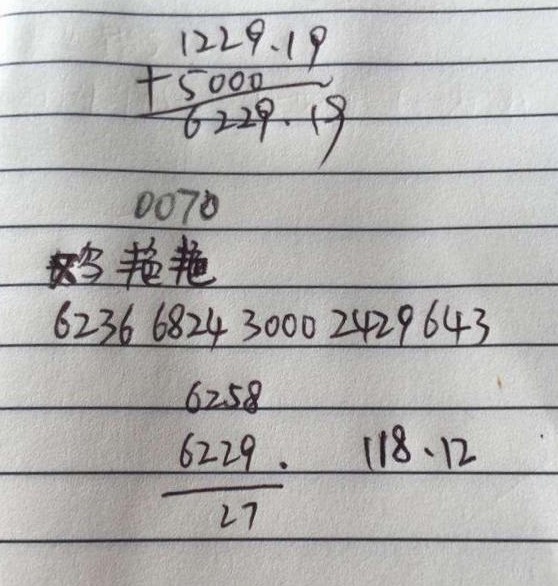 1229.19
+5000
6229.19
0070
艳艳
6236 6824 3000 2429 643
6258
6229. 118.12
27